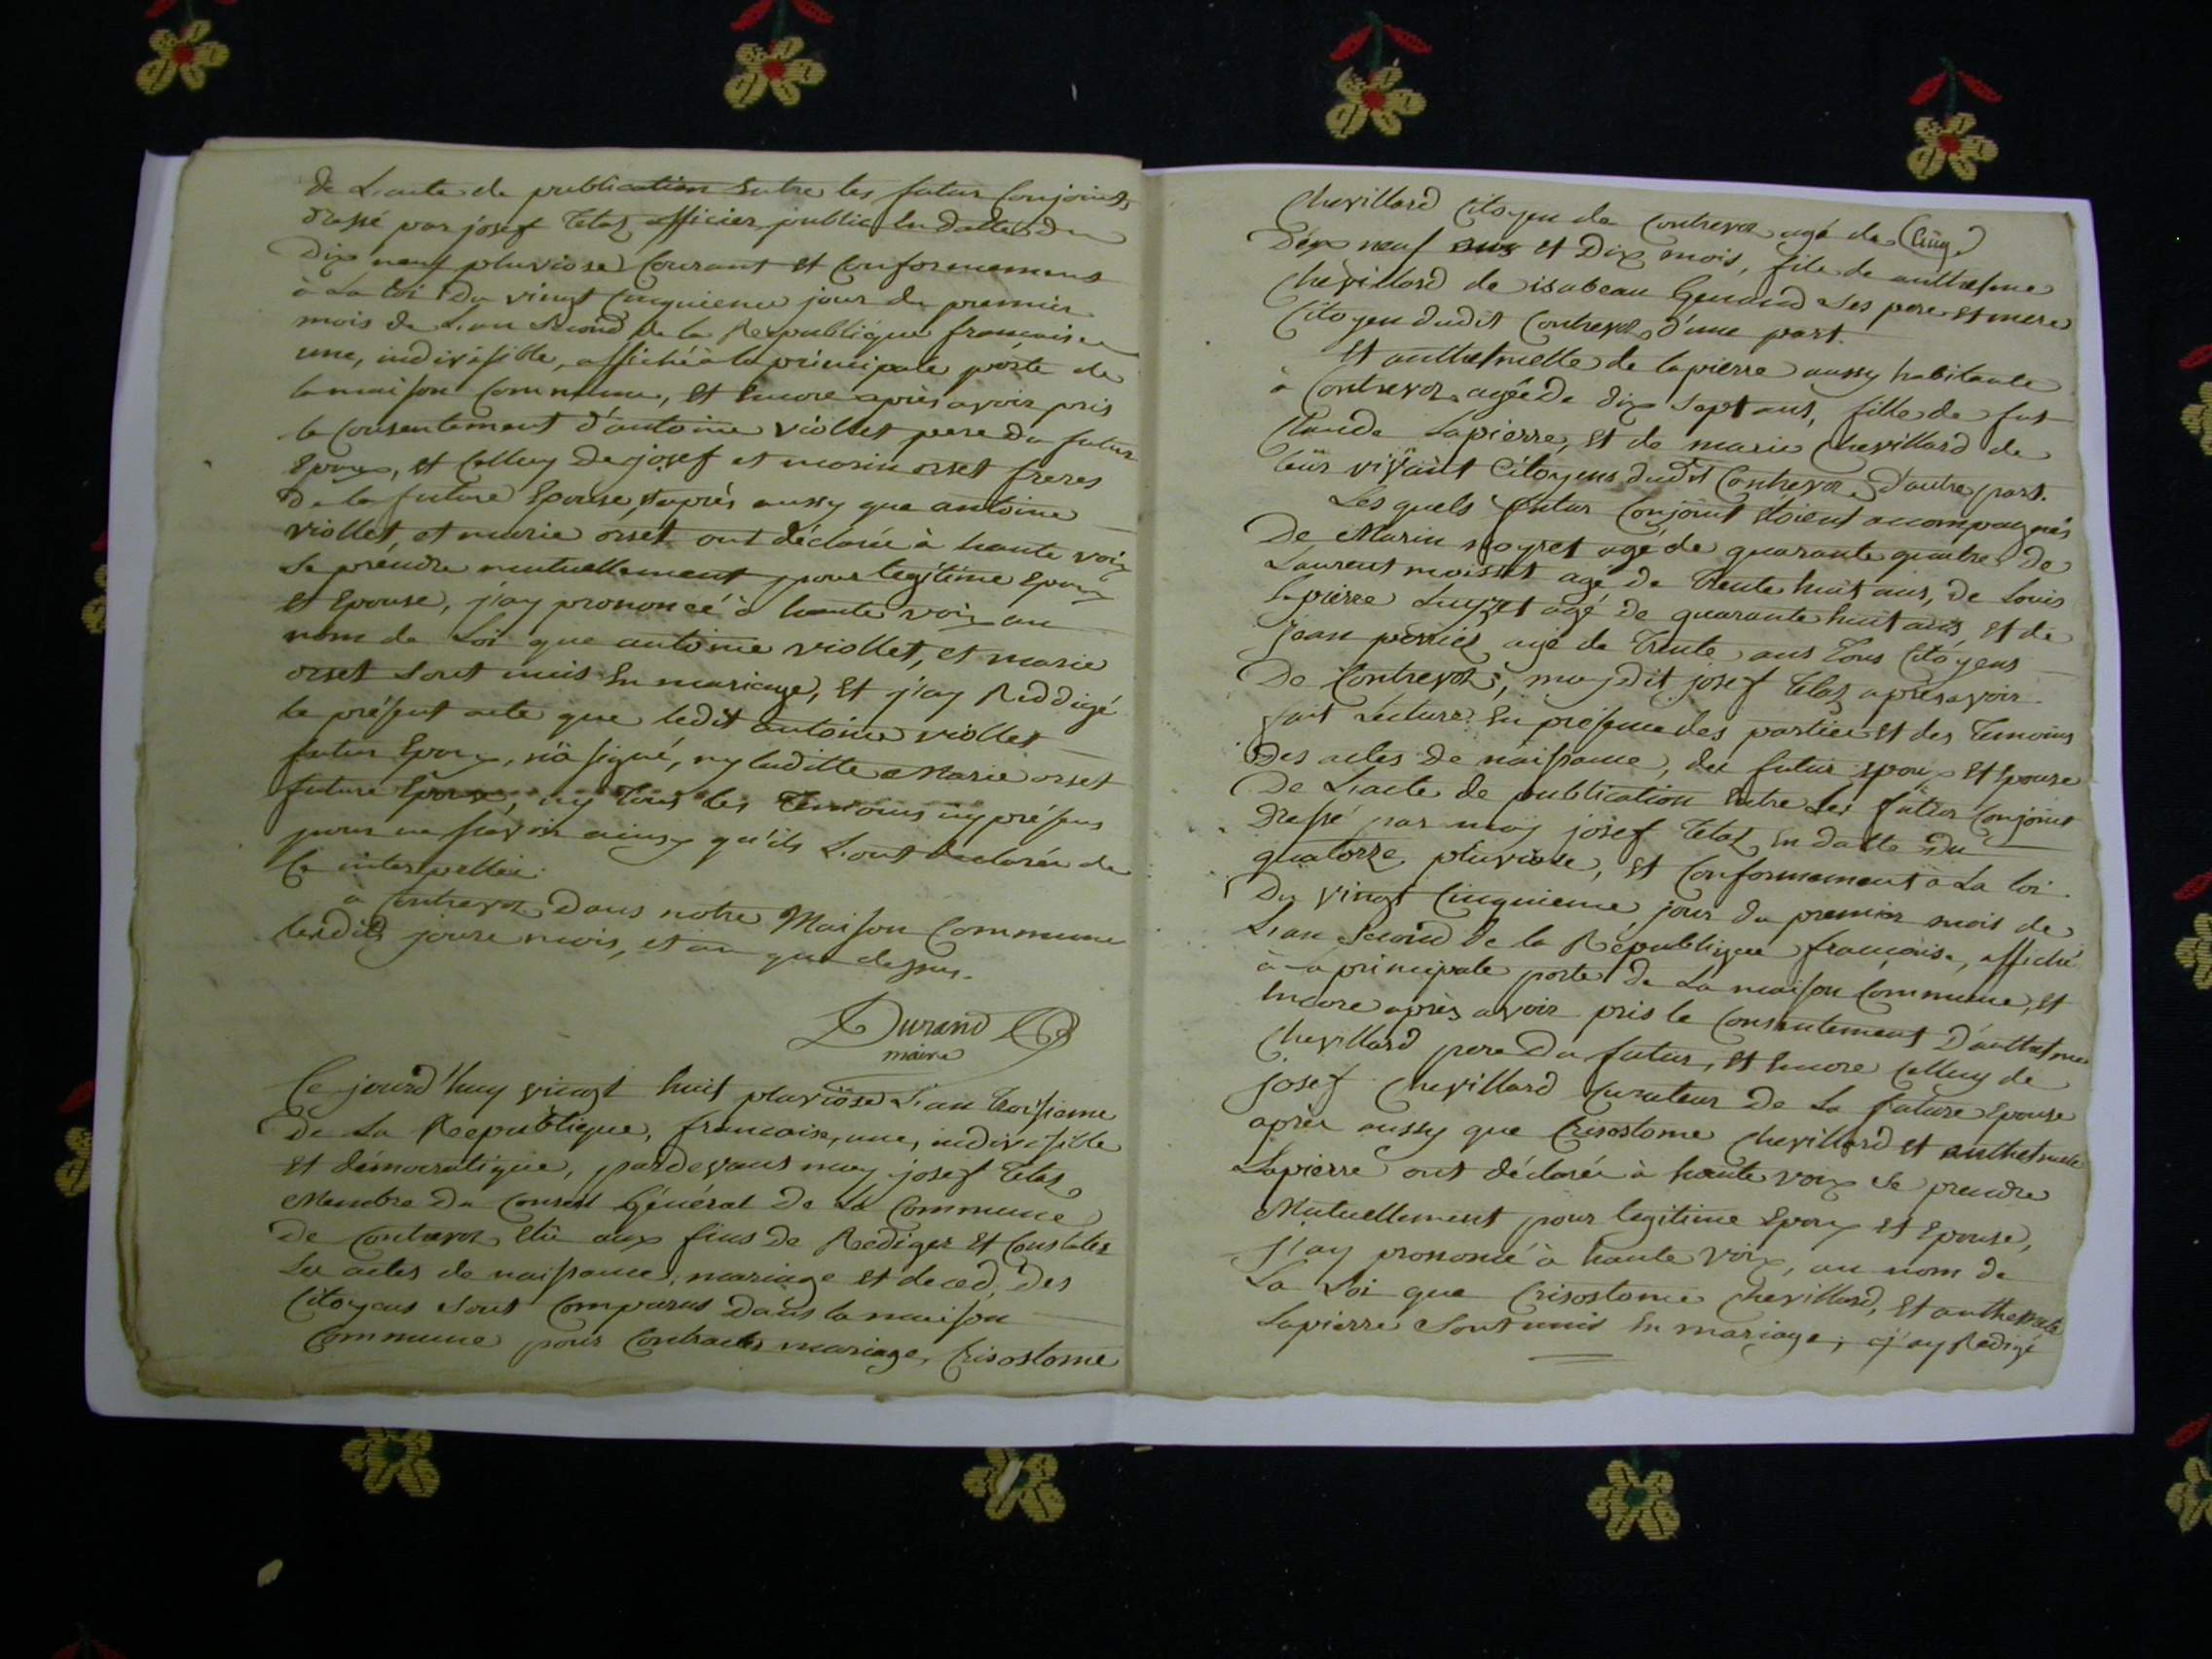 de L'acte de publication Entre les futur Conjoints
drassé par josef Tetaz officier public En datte du
Dix neuf pluviose Courant et Conformemens
à La loi du vingt Cinquieme jour du premier
mois de L'an Second de la Republique francaise
une, indivisible, affiché à la principale porte de
la maison Commune, et Encore après avoir pris
le Consentement d'antoine viollet pere du futur
Epoux, et Celluy De josef et marin orset freres
De la future Epouse, d'aprés aussy que antoine
viollet, et marie orset ont déclarée à haute voix
se prendre mutuellement pour legitime Epoux
et Epouse, j'ay prononcé à haute voix au
nom de Loi que antoine viollet, et marie
orset sont unis En mariage, Et j'ay Reddigé
le présent acte que ledit antoine viollet
futur Epoux, n'a signé, ny laditte Marie orset
future Epouse, ny Tous les Temoins ny présens
pour ne scavoir ainsy qu'ils L'ont declarée de
Ce interpellée
à Contrevoz Dans notre Maison Commune
lesdits jours mois, et an que dessus.
Durand
maire
Ce jourd'huy vingt huit pluviôse L'an Troisieme
De La Republique, francaise, une, indivisible
et démocratique, pardevant moy josef Tetaz
Membre du Conseil Général De La Commune
De Contrevoz Elû aux fins de Rédiger et Constater
Les actes de naissance, mariage et deced, Des
Citoyens sont Comparus Dans la maison
Commune pour Contracter mariage, Crisostome
Chevillard Citoyen de Contrevoz agé de
Dix neuf ans et Dix mois, fils de anthelme
Chevillard de isabeau Genand ses pere et mere
Citoyen dudit Contrevoz d'une part.
Et anthelmette de lapierre aussy habitante
à Contrevoz agée De dix sept ans, fille de fut
Claude Lapierre, et de marie Chevillard de
leur vivant Citoyens dudit Contrevoz d'autre part.
Les quels futur Conjoint étoient accompagnés
De Marin moyret agé de quarante quatre De
Laurent moisset agé de Trente huit ans, de Louis
lapierre agé de quarante huit ans, et de
jean perrier agé de Trente ans Tous Citoyens
De Contrevoz, moydit josef Tetaz après avoir
fait Lecture En présence des parties et des Temoins
Des actes De naissance, des futur Epoux et Epouse
De L'acte de publication Entre Les futur Conjoint
drassé par moy josef Tetaz En datte Du
quatorze pluviose, et Conformement à La loi
Du vingt Cinquieme jour du premier mois de
L'an Second De la République française, affiché
à la principale porte De La maison Commune, et
Encore après avoir pris le Consentement D'anthelme
Chevillard pere Du futur, et Encore Celluy de
josef Chevillard Curateur De La future Epouse
après aussy que Crisostome Chevillard et anthelmete
Lapierre ont déclarée à haute voix se prendre
Mutuellement pour legitime Epoux et Epouse,
j'ay prononcé à haute voix, au nom de
La Loi que Crisostome Chevillard, et anthelmete
Lapierre sont unis En mariage; j'ay Redigé